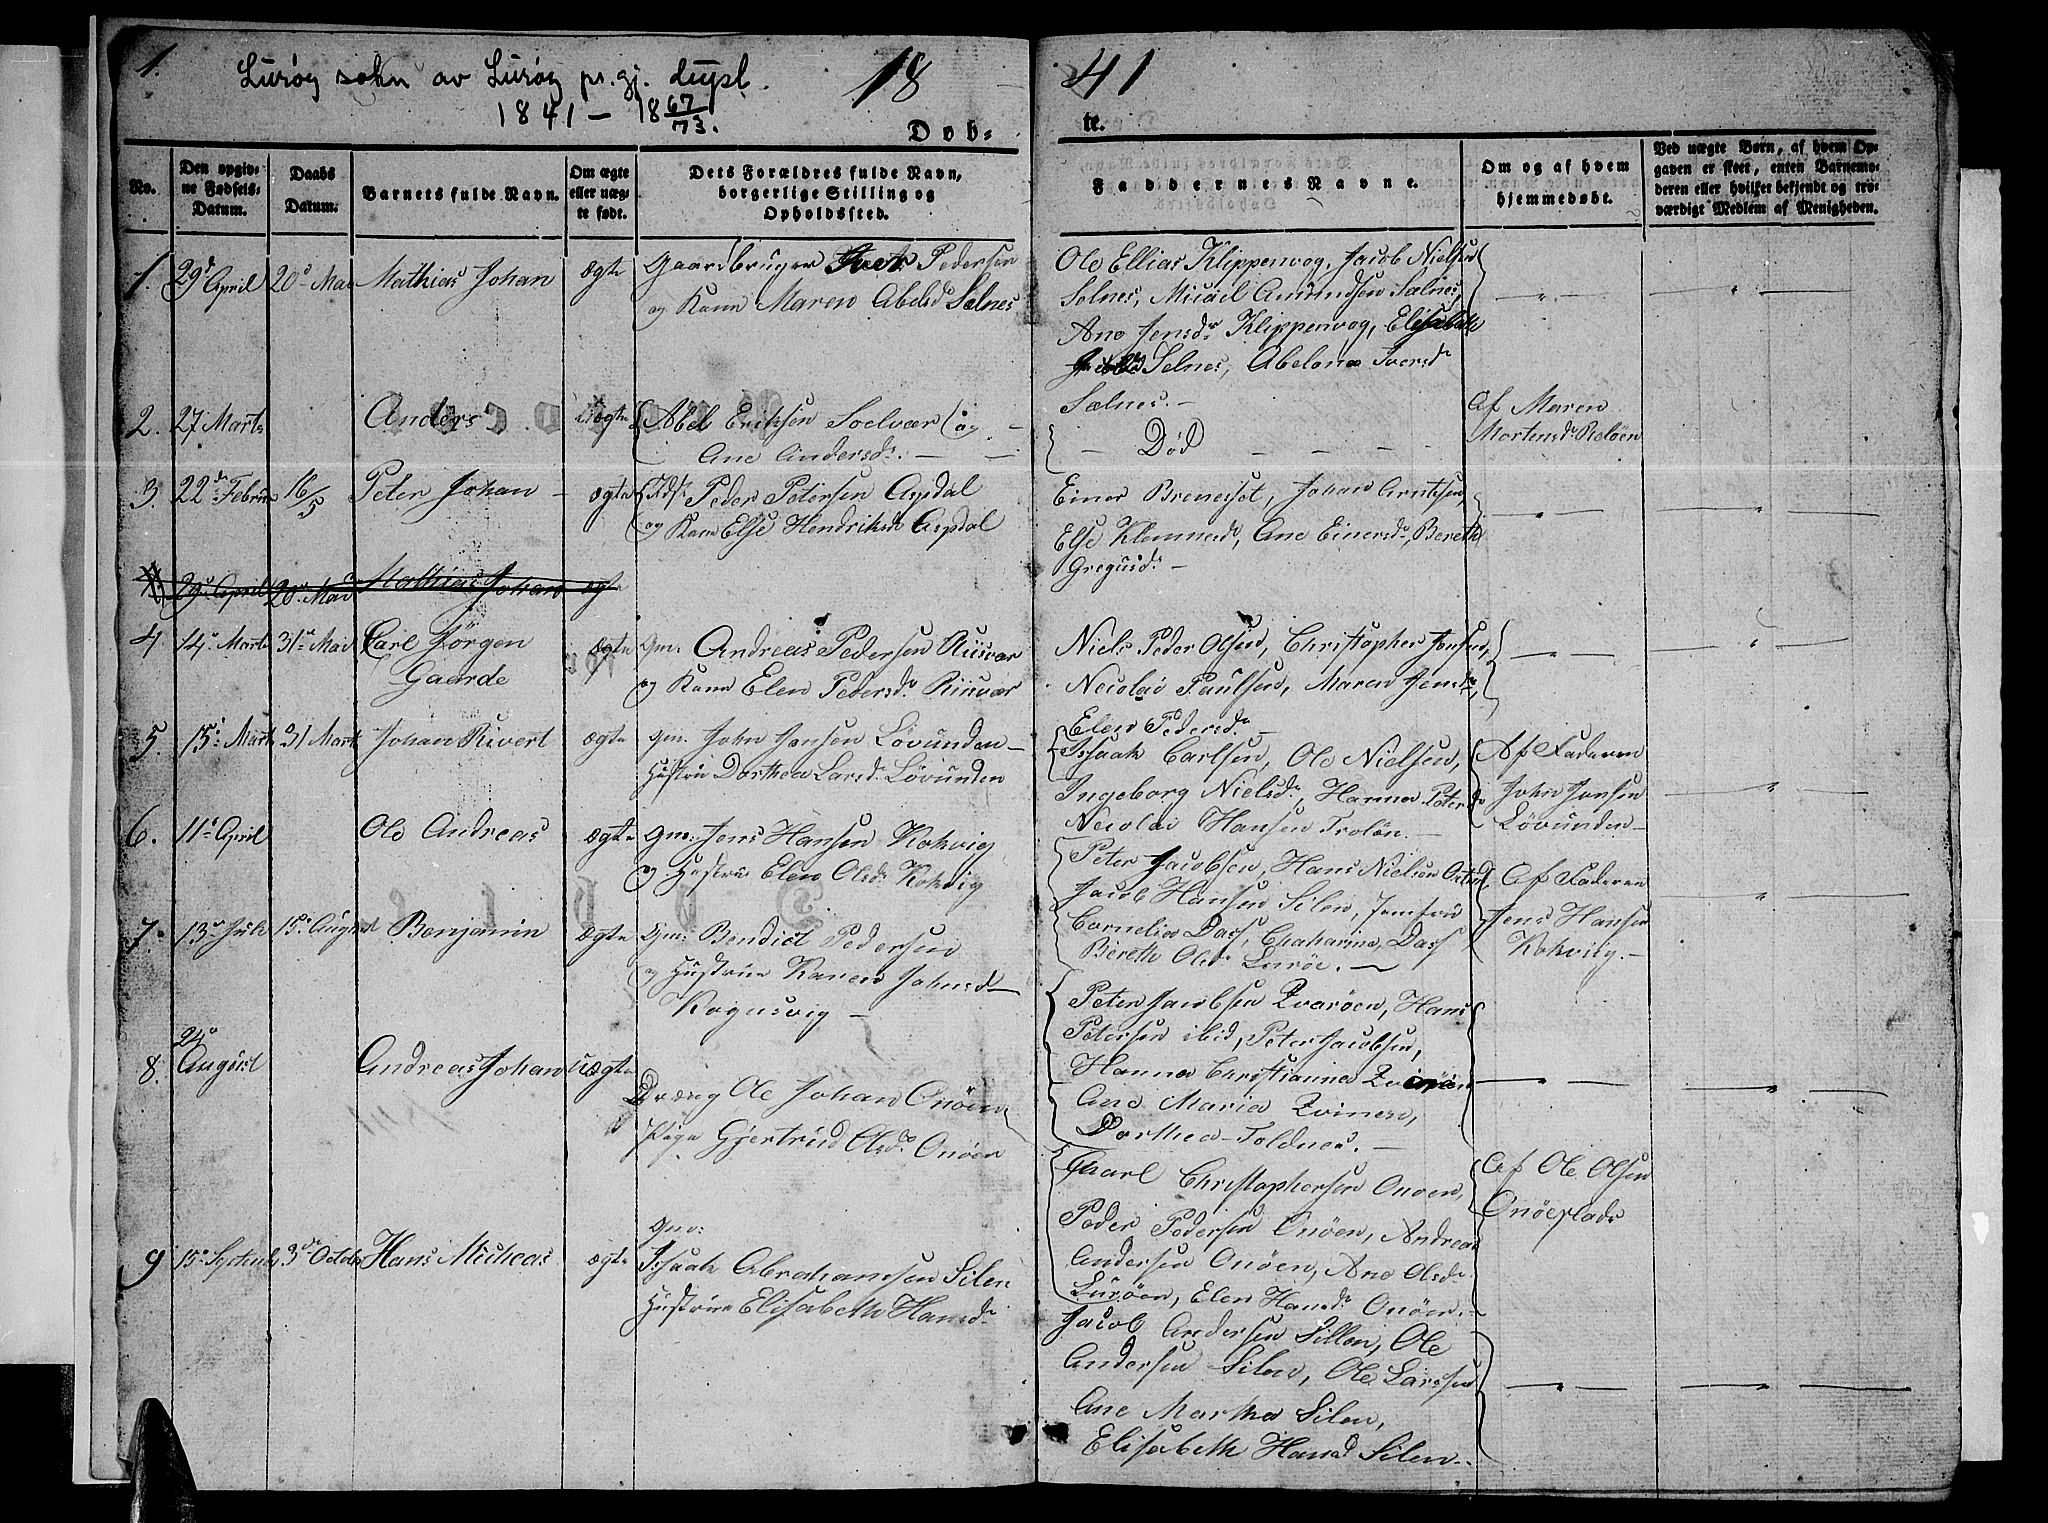 1.
Lurøy sokn av Lurøy pr.gj. dupl.
1841 - 1867/73.
18
41
Døb-
te.
No.
Den opgiv-
ne Fødsels-
Datum.
Daabs
Datum.
Barnets fulde Navn.
Om ægte
eller uæg-
te født.
Dets Forældres fulde Navn,
borgerlige Stilling og
Opholdssted.
Faddernes Navne.
Om og af hvem
hjemmedøbt.
Ved uægte Børn, af hvem Op-
gaven er skeet, enten Barnemo-
deren eller hvilket bekjendt og tro-
værdigt Medlem af Menigheden.
1. 29d April 20d Mai Mathias Johan ægte Gaardbruger Iver Pedersen
og Kone Maren Abelsdr Selnes
Ole Ellias Klippenvog, Jacob Nielsen
Selnes, Micael Amundsen Selnes,
Ane Jensdr Klippenvog, Elisabeth
Selnes, Abelona Iversdr
Selnes. -
2. 27 Marts Anders uægte Abel Eriksen Soelvær og
Ane Andersdr. - -
- Død - - -
Af Maren
Mortensdr Reløen
3. 22de Februar 16/5 Peter Johan - ægte Peder Petersen Aspdal
og Kone Else Hendriksdr Aspdal
Einer Brenesset, Johan Arntsen,
Else Klemmesdr, Ane Einersdr, Bereth
Gregusdr -
29d April 20d Mai Mathias Johan ægte
4 14d Marts 31te Mai Carl Jörgen
Gaarde
ægte Gm. Andreas Pedersen Riisvær
og Kone Elen Pedersdr Riisvær
Niels Peder Olsen, Christopher Jensen,
Nicolai Paulsen, Maren Jensdr,
Elen Pedersdr -
5. 15d Marts 31 Marts Johan Rivert ægte Gm. John Jonsen Lövunden -
Hustrue Dorthea Larsdr Lövunden
Issaak Carlsen, Ole Nielsen,
Ingeborg Nielsdr, Hanna Petersdr
Nicolai Hansen Troløn. -
Af Faderen
John Jonsen
Lövunden -
6. 11d April Ole Andreas ægte Gm. Jens Hansen Kokvig
og Hustrue Elen Olsdr Kokvig
Peter Jacobsen, Hans Nielsen
Jacob Hansen Silen, Jomfrue
Cornelia Dass, Chatarina Dass
Bereth Olsdr Luröe. -
Af Faderen
Jens Hansen
Kokvig. -
7. 13d Juli 15d August Benjamin ægte Gm. Bendict Pedersen
og Hustrue Karen Johnsdr -
Kognsvig -
Peter Jacobsen Qvaröen, Hans
Petersen ibid, Peter Jacobsen,
Hanna Christianna
Ane Maria Qvinesn,
Dorthea Toldnes. -
8. 24d
August Andreas Johan uægte
Dræng Ole Johan Onöen
Pige Gjertrud Olsdr Onöen
Carl Christophersen Onöen,
Peder Pedersen Onöen, Andreas
Andersen Onöen, Ane Olsdr
Luröen, Elen Hansdr Onöen. -
Af Ole Olsen
Onöeplads
9 15d Septemb 3de October Hans Micheas ægte Gm:
Issaak Abrahamsen Silen
Hustrue Elisabeth Hansdr
Jacob Andersen Sillen, Ole
Andersen Silen, Ole Larssen
Ane Martha Silen,
Elisabeth Hansd Silen -